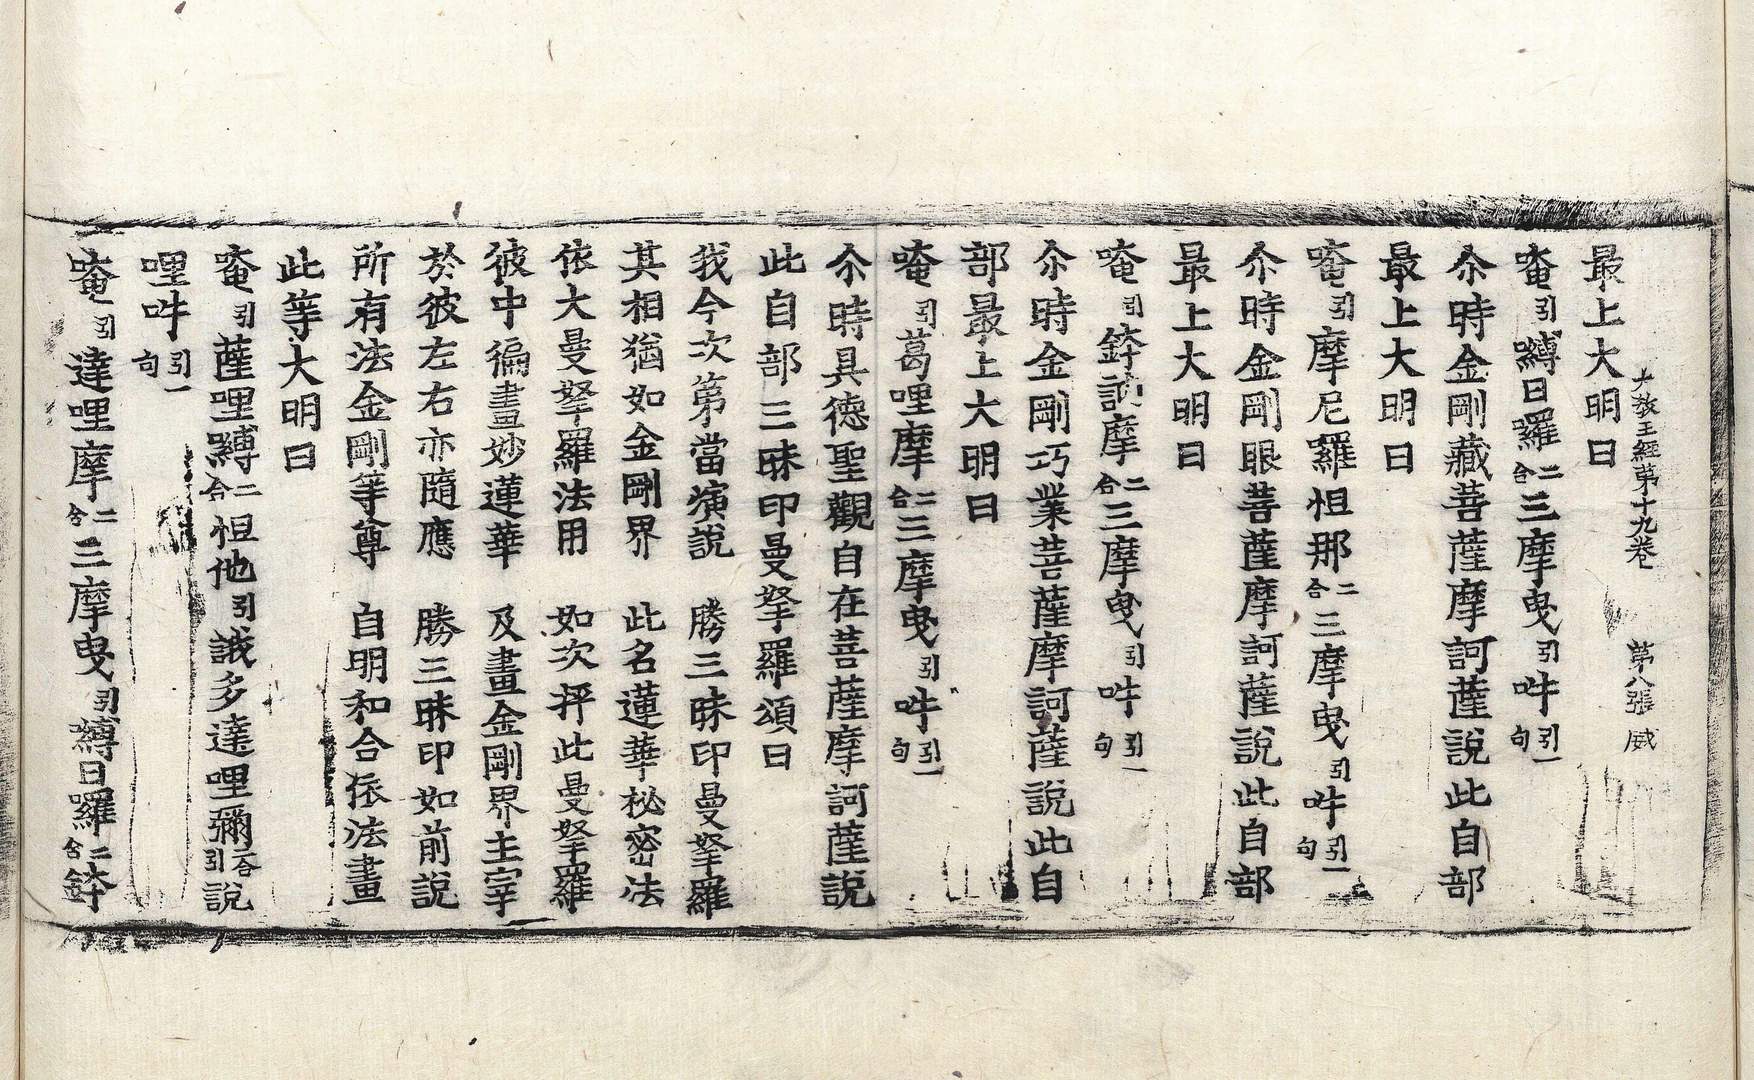 大教王經第十九卷　第八張　威
最上大明曰
唵引嚩日囉二合三摩曳引吽引一句
尒時金剛藏菩薩摩訶薩說此自部
最上大明曰
唵引摩尼囉怛那二合三摩曳引吽引一句
尒時金剛眼菩薩摩訶薩說此自部
最上大明曰
唵引鉢訥摩二合三摩曳引吽引一句
尒時金剛巧業菩薩摩訶薩說此自
部最上大明曰
唵引葛哩摩二合三摩曳引吽引一句
尒時具德聖觀自在菩薩摩訶薩說
此自部三昧印曼拏羅頌曰
我今次第當演說　勝三昧印曼拏羅
其相猶如金剛界　此名蓮華秘密法
依大曼拏羅法用　如次抨此曼拏羅
彼中徧畫妙蓮華　及畫金剛界主宰
於彼左右亦隨應　勝三昧印如前說
所有法金剛等尊　自明和合依法畫
此等大明曰
唵引薩哩嚩二合怛他引誐多達哩彌二合引說
哩吽引一句
唵引達哩摩二合三摩曳引嚩日囉二合鉢